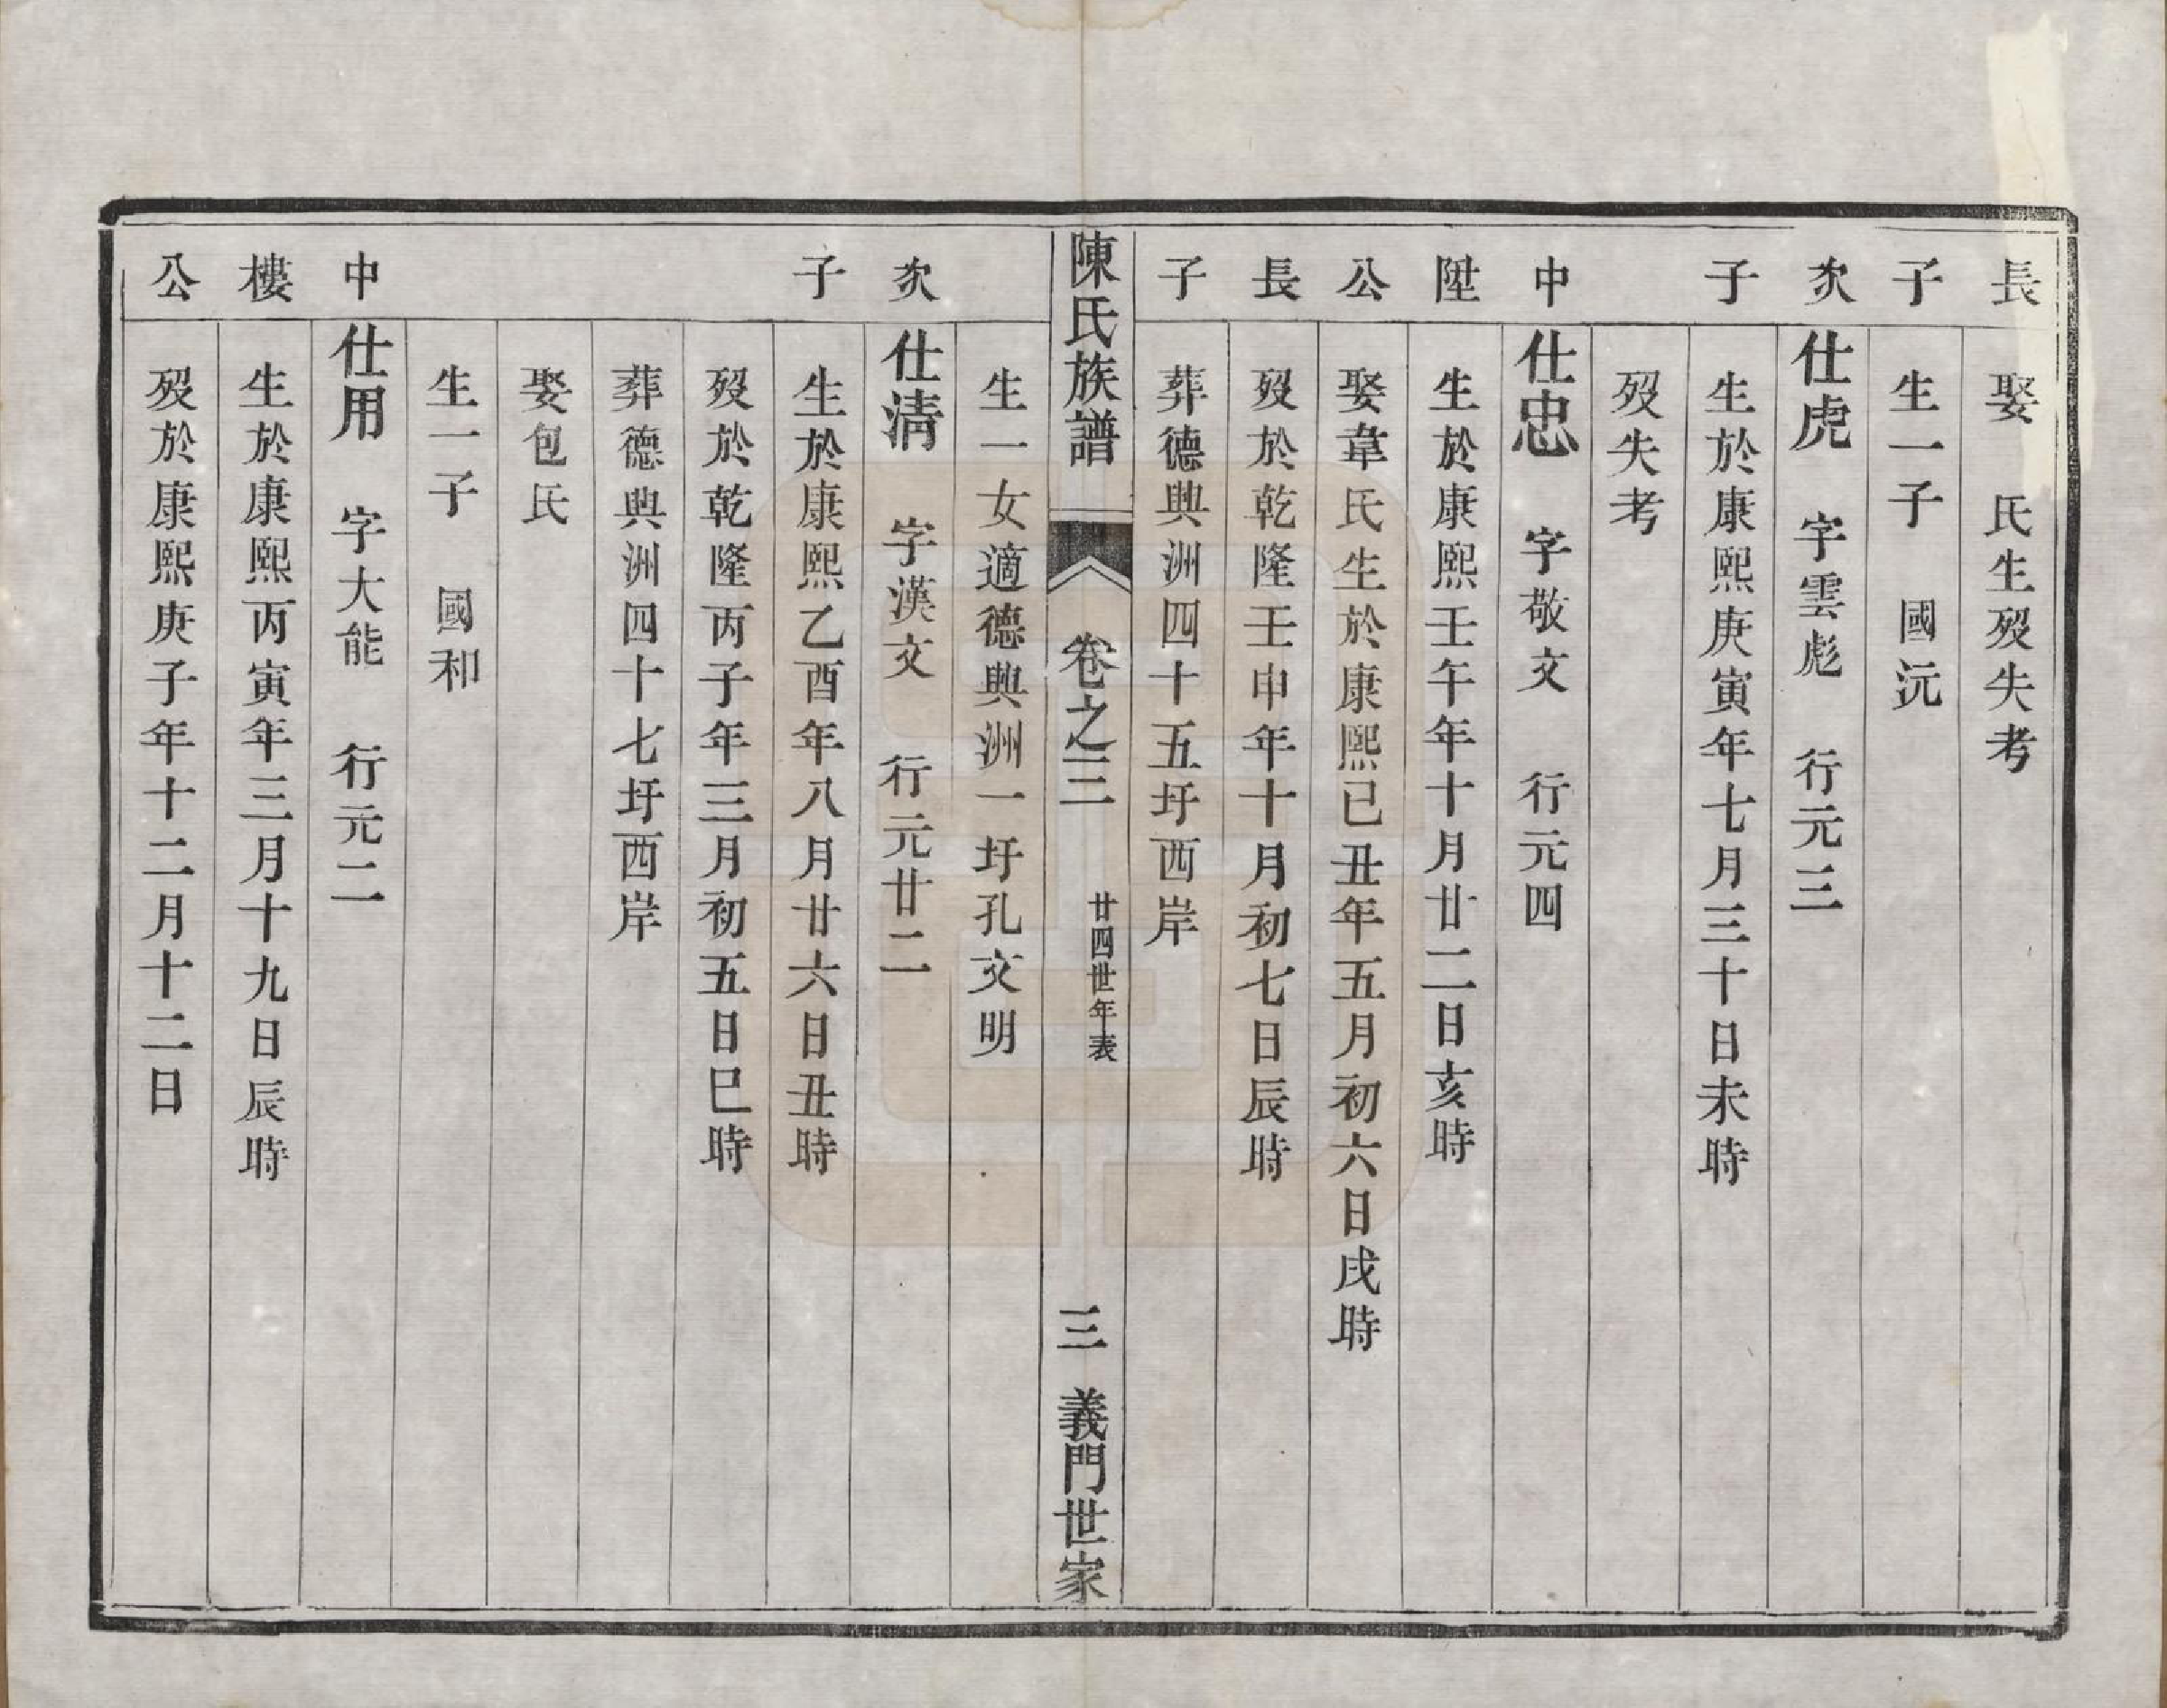 長
娶 氏生歿失考
子
生一子 國沅
次
仕虎 字雲彪 行元三
子
生於康熙庚寅年七月三十日未時
歿失考
中
仕忠 字敬文 行元四
陞
生於康熙壬午年十月廿二日亥時
公
娶韋氏生於康熙已丑年五月初六日戌時
長
歿於乾隆壬申年十月初七日辰時
子
葬德興洲四十五圩西岸
陳氏族譜 卷之三 廿四世年表 三 義門世家
生一女適德興洲一圩孔文明
次
仕清 字漢文 行元廿二
子
生於康熙乙酉年八月廿六日丑時
歿於乾隆丙子年三月初五日巳時
葬德興洲四十七圩西岸
娶包氏
生一子 國和
中
仕用 字大能 行元二
樓
生於康熙丙寅年三月十九日辰時
公
歿於康熙庚子年十二月十二日